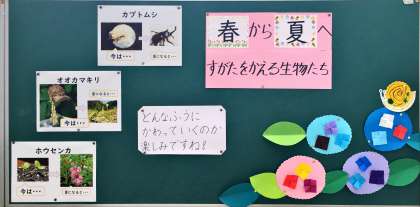 カブトムシ
今は・・・
夏になると・・・
オオカマキリ
今は・・・
夏になると・・・
ホウセンカ
今は・・・
夏になると・・・
春から夏へ
すがたをかえる生物たち
どんなふうに
かわっていくのか
楽しみですね!